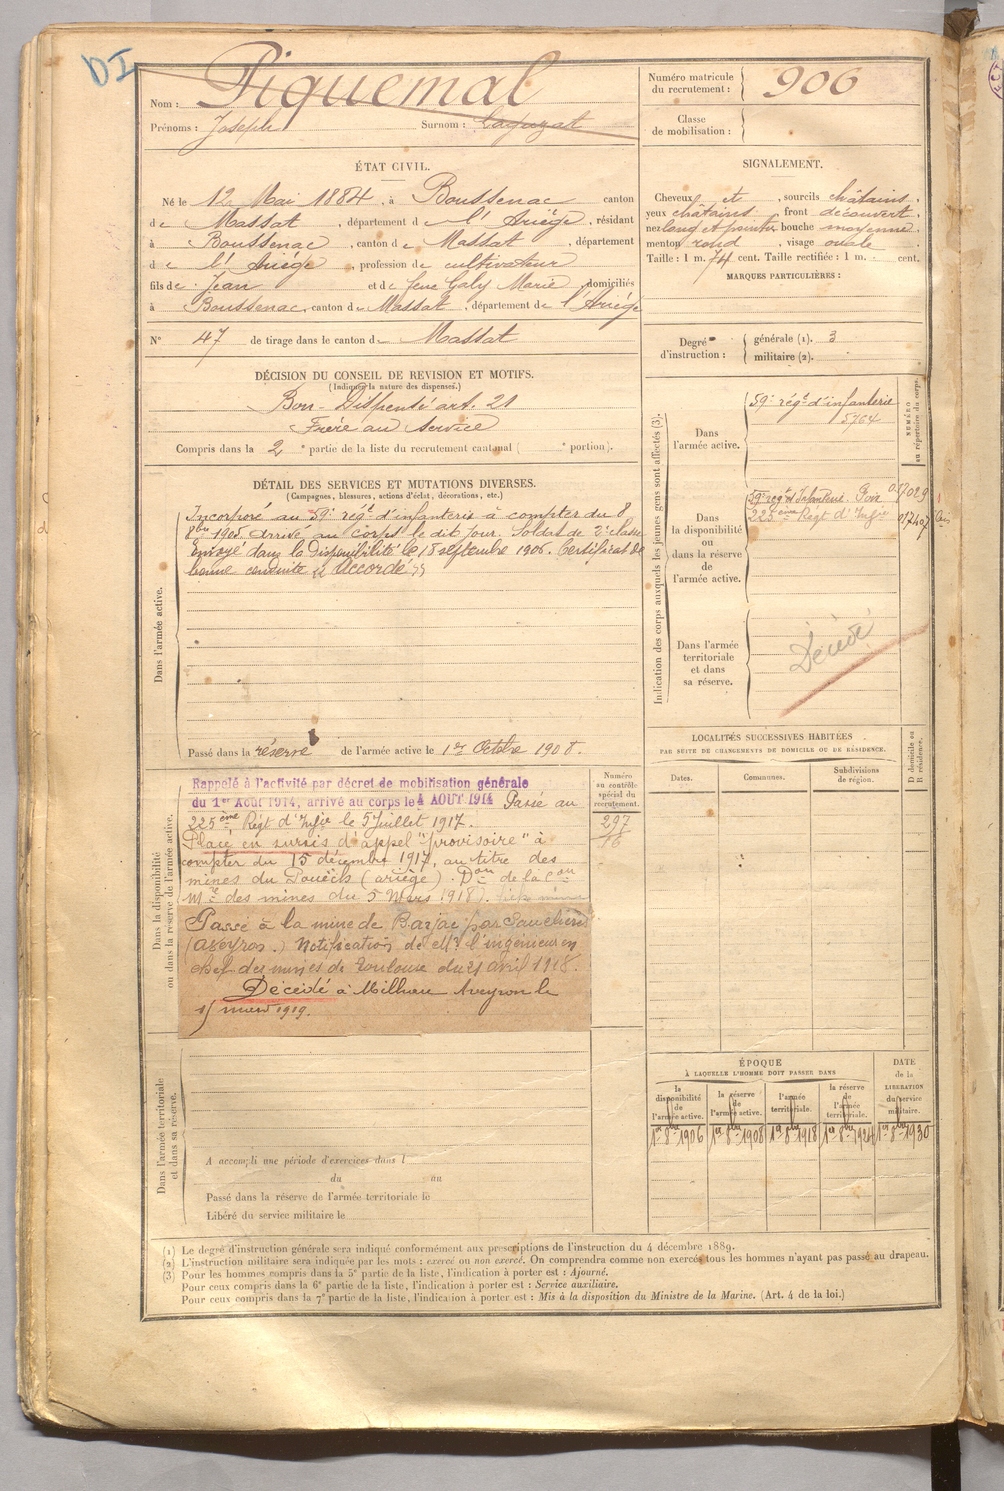 DI
Nom : Piquemal
Prénoms : Joseph Surnom :
Numéro matricule du recrutement : 906
Classe de mobilisation :
ÉTAT CIVIL.
Né le 12 Mai 1884, à Boussenac canton
de Massat, département de l'Ariège, résidant
à Boussenac, canton de Massat, département
de l'Ariège, profession de cultivateur
fils de Jean et de feue Galy Marie domiciliés
à Boussenac, canton de Massat, département de l'Ariège
N° 47 de tirage dans le canton de Massat
SIGNALEMENT.
Cheveux et , sourcils châtains,
yeux châtains front découvert,
nez long et pointu bouche moyenne
menton rond , visage ovale
Taille : 1 m. 74 cent. Taille rectifiée : 1 m. cent.
MARQUES PARTICULIÈRES :
Degré d'instruction :
générale (1). 3
militaire (2).
DÉCISION DU CONSEIL DE REVISION ET MOTIFS.
(Indiquer la nature des dispenses.)
Bon - Dispensé art. 21
Frère au Service
Compris dans la 2e partie de la liste du recrutement cantonal ( e portion).
DÉTAIL DES SERVICES ET MUTATIONS DIVERSES.
(Campagnes, blessures, actions d'éclat, décorations, etc.)
Dans l'armée active.
Incorporé au 59e régt d'infanterie à compter du 8
8bre 1905 arrivé au corps le dit jour. Soldat de 2e classe
Envoyé dans la disponibilité le 18 septembre 1906. Certificat de
bonne conduite "Accordé"
Passé dans la réserve de l'armée active le 1er Octobre 1908.
Indication des corps auxquels les jeunes gens sont affectés (3).
NUMÉRO au répertoire du corps.
Dans l'armée active.
59e régt d'infanterie
5764
Dans la disponibilité ou dans la réserve de l'armée active.
59e régt d'Infanterie Foix
225ème Régt d'Infie
Dans l'armée territoriale et dans sa réserve.
Décédé
LOCALITÉS SUCCESSIVES HABITÉES
PAR SUITE DE CHANGEMENTS DE DOMICILE OU DE RÉSIDENCE.
Dates. Communes. Subdivisions de région.
D domicile ou R résidence.
Dans la disponibilité ou dans la réserve de l'armée active.
Numéro au contrôle spécial du recrutement.
297
16
Rappelé à l'activité par décret de mobilisation générale
du 1er Août 1914, arrivé au corps le 4 AOUT 1914 Passé au
225ème Régt d'Infie le 5 Juillet 1917.
Placé en sursis d'appel "provisoire" à
compter du 15 décembre 1917, au titre des
mines du Pouech (ariège). Don de la con
Mre des mines du 5 Mars 1918).
Passé à la mine de Barjac par
(aveyron.) Notification de Mr l'ingénieur en
chef des mines de Toulouse du 21 avril 1918.
Décédé à Milhau Aveyron le
mars 1919.
ÉPOQUE
À LAQUELLE L'HOMME DOIT PASSER DANS
la disponibilité de l'armée active.
la réserve de l'armée active.
l'armée territoriale.
la réserve de l'armée territoriale.
DATE de la LIBÉRATION du service militaire.
1er 8bre 1906 1er 8bre 1908 1er 8bre 1918 1er 8bre 1924 1er 8bre 1930
Dans l'armée territoriale et dans sa réserve.
A accompli une période d'exercices dans l
du au
Passé dans la réserve de l'armée territoriale le
Libéré du service militaire le
(1) Le degré d'instruction générale sera indiqué conformément aux prescriptions de l'instruction du 4 décembre 1889.
(2) L'instruction militaire sera indiquée par les mots : exercé ou non exercé. On comprendra comme non exercés tous les hommes n'ayant pas passé au drapeau.
(3) Pour les hommes compris dans la 5e partie de la liste, l'indication à porter est : Ajourné.
Pour ceux compris dans la 6e partie de la liste, l'indication à porter est : Service auxiliaire.
Pour ceux compris dans la 7e partie de la liste, l'indication à porter est : Mis à la disposition du Ministre de la Marine. (Art. 4 de la loi.)